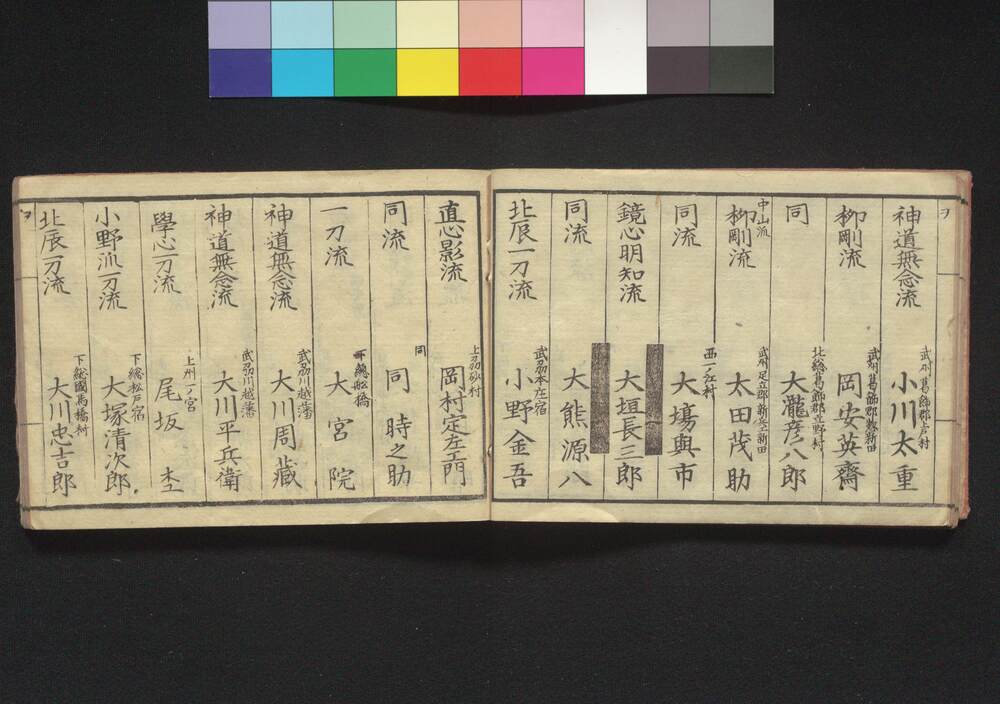 ヲ
神道無念流
武州葛飾郡戸村
小川太重
柳剛流
武州葛飾郡新田
岡安英齋
同
北総葛飾郡野村
大瀧彦八郎
中山流
柳剛流
武州足立郡新兵エ新田
太田茂助
同流
西ノ江村
大塲與市
鏡心明知流
大垣長三郎
同流
大熊源八
北辰一刀流
武刕本庄宿
小野金吾
直心影流
上刕砂村
岡村定左エ門
同流
同
同時之助
一刀流
下總舩橋
大宮院
神道無念流
武刕川越藩
大川周藏
神道無念流
武刕川越藩
大川平兵衛
學心一刀流
上州一ノ宮
尾坂
小野派一刀流
下総松戸宿
大塚清次郎
北辰一刀流
下総國馬橋村
大川忠吉郎
ヲ